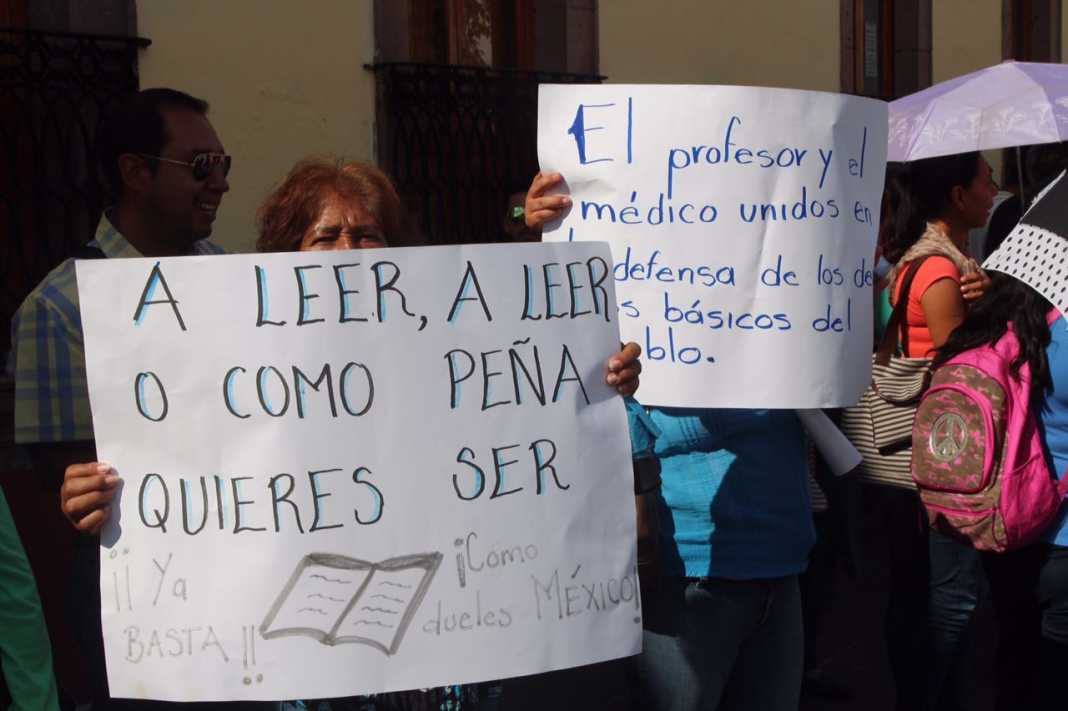 A LEER, A LEER
O COMO PEÑA
QUIERES SER
¡¡ Ya
BASTA !!
¡Cómo
dueles MÉXICO!
El profesor y el
médico unidos en
defensa de los de
s básicos del
blo.